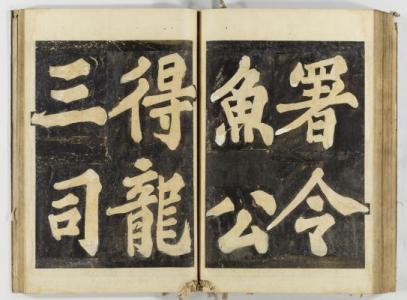 署令
魚公
得龍
三司